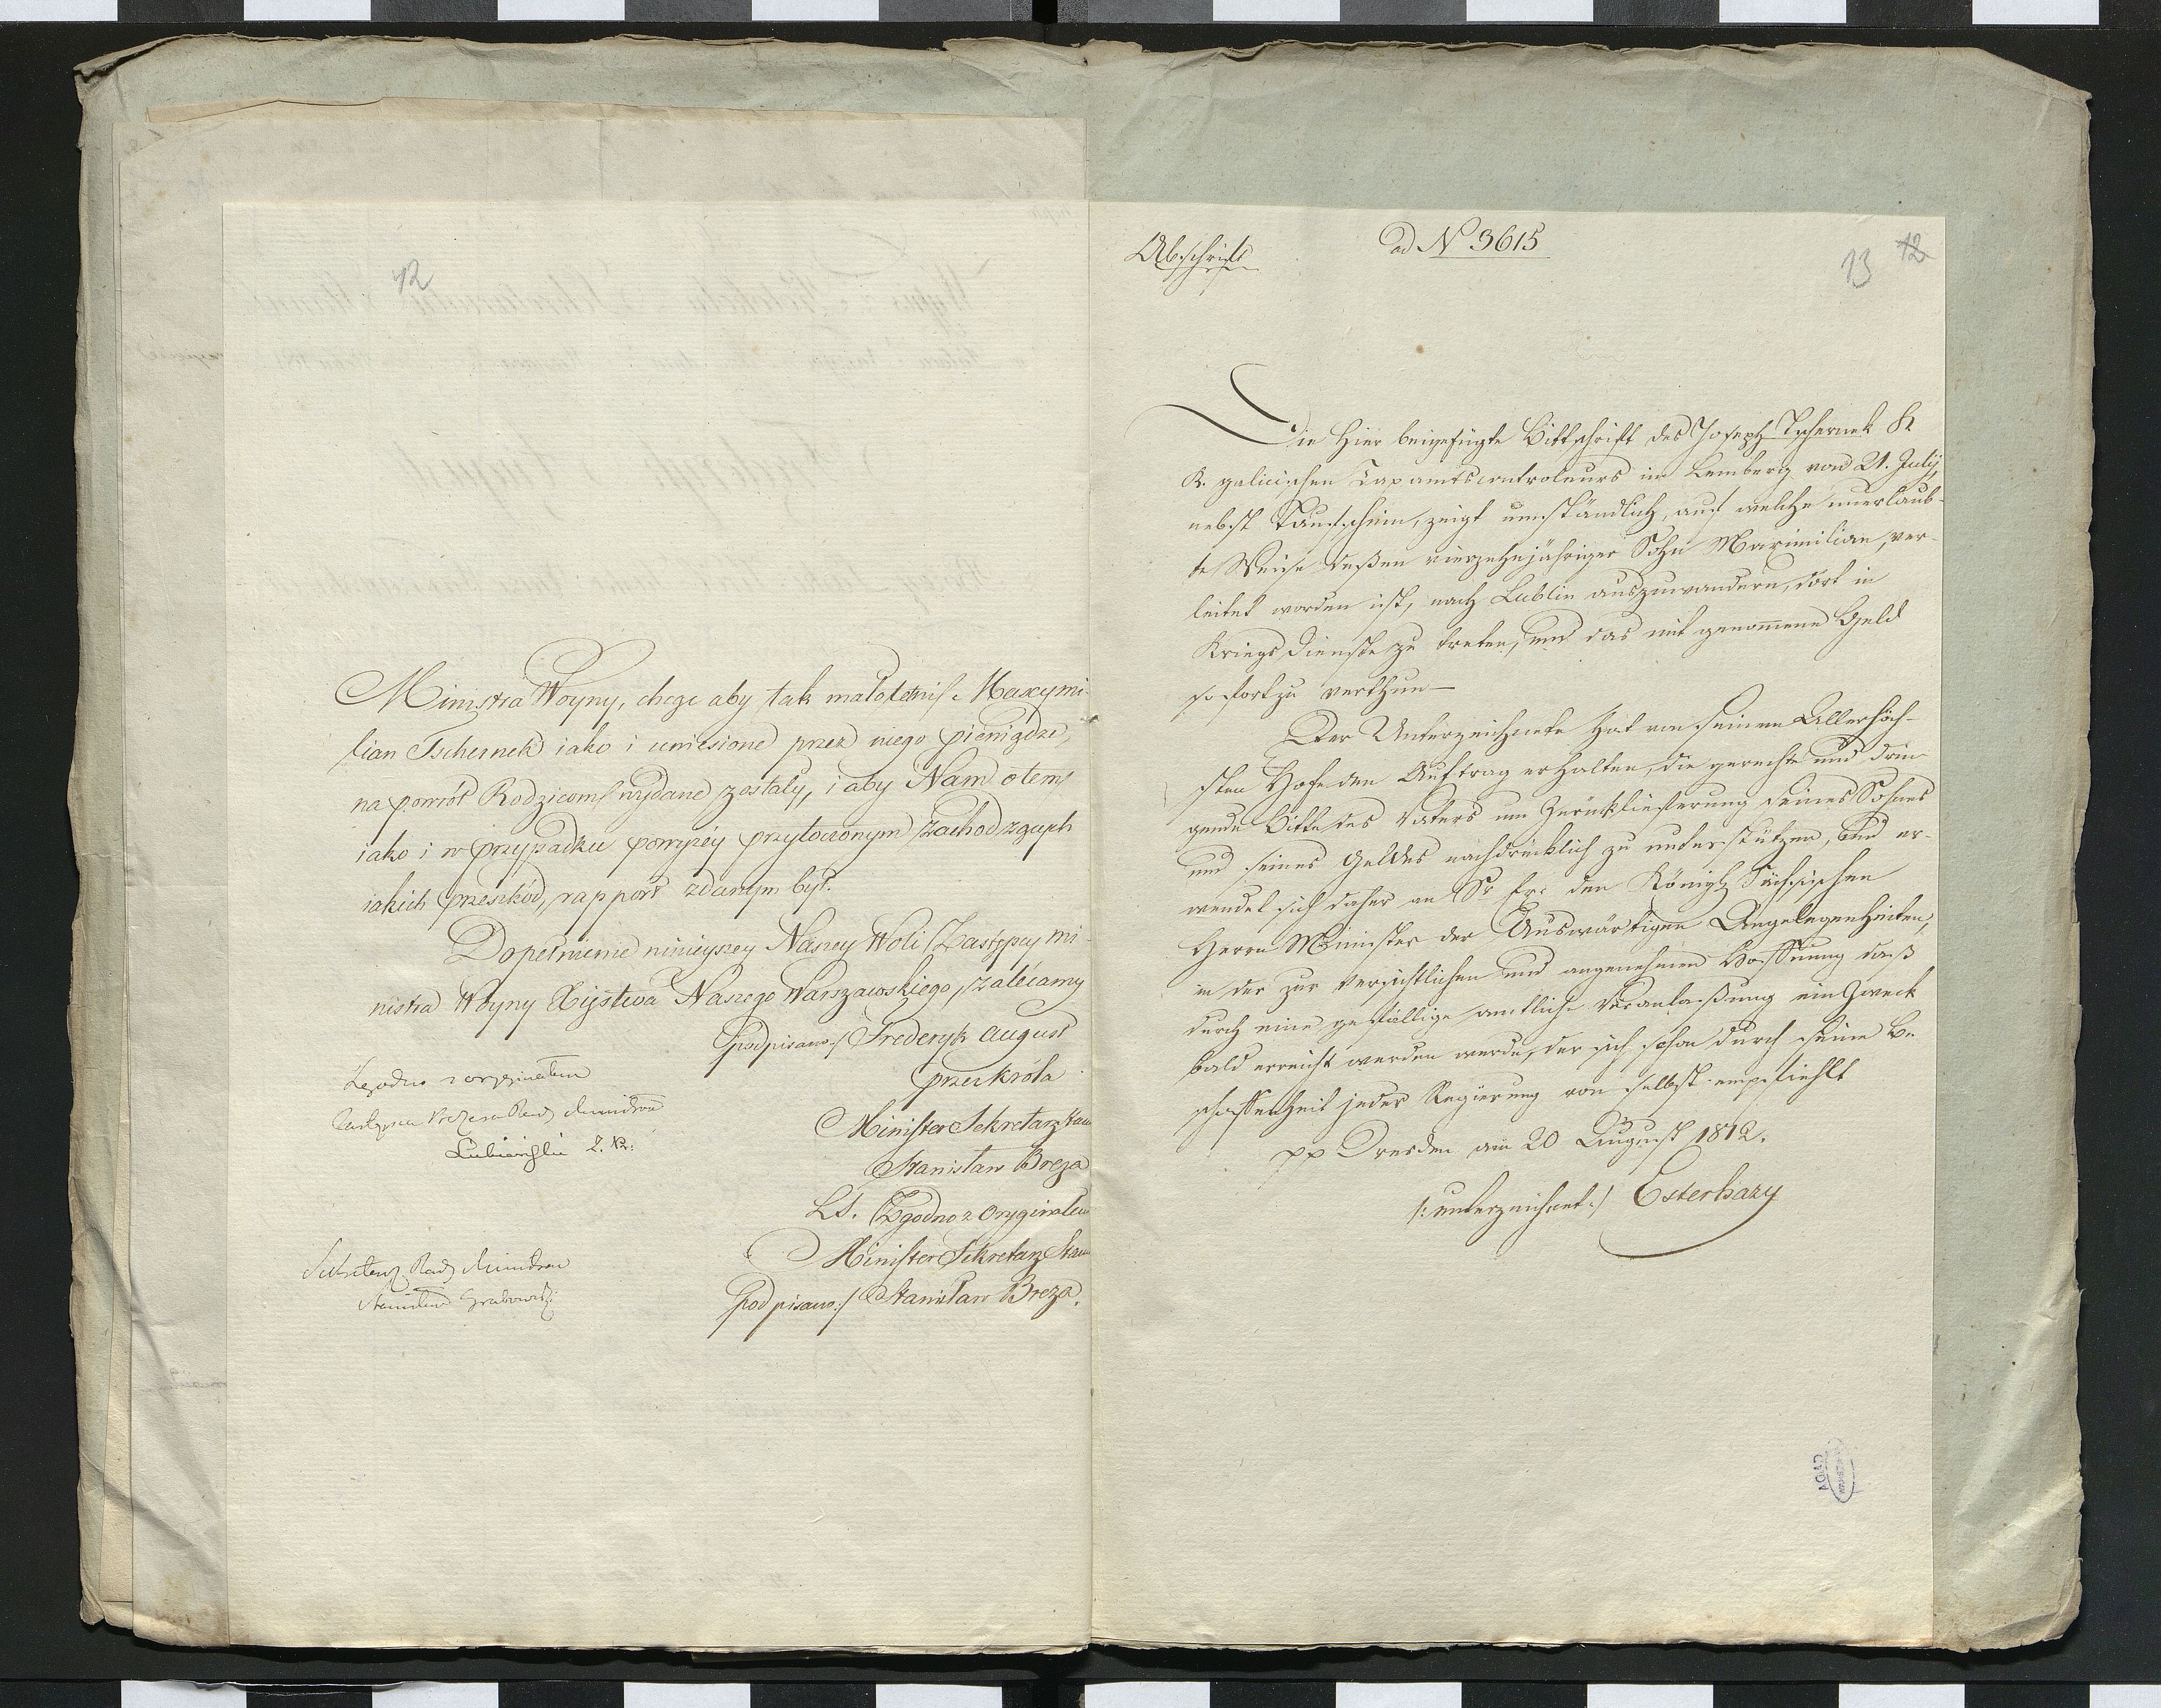 12
Ministra Woyny, chcąc aby tak małoletni Maxymi-
lian Tschernek iako i uniesione przez niego pieniądze,
na powrót Rodzicom wydane zostały, i aby Nam o tem
iako i w przypadku powyżey przytoczonym zachodzących
iakich przeszkód, rapport zdanym był.
Dopełnienie ninieyszey Naszey Woli Zastępcy Mi-
nistra Woyny Xięstwa Naszego Warszawskiego, zalecamy
podpisano:/ Frederyk August
przez Króla
Minister Sekretarz Stanu
Stanisław Breza
LS. Zgodno z Oryginałem
Minister Sekretarz Stanu
podpisano:/ Stanisław Breza.
Zgodno z oryginałem
Zastępca Prezesa Rady Ministrów
Łubieński
Sekretarz Rady Ministrów
Stanisław Grabowski
Abschrift
ad N 3615
13 12
Die hier beigefügte Bittschrift des Joseph Tschernek K.
K. galicischen Taxamtscontroleurs in Lemberg vom 21. July,
nebst Taufschein, zeigt umständlich, auf welche unerlaub-
te Weise deßen vierzehnjähriger Sohn Maximilian, ver-
leitet worden ist, nach Lublin auszuwandern, dort in
Kriegs Dienste zu treten, und das mit genommene Geld
sofort zu verthun—
Der Unterzeichnete hat von seinem Allerhöch-
sten Hofe den Auftrag erhalten, die gerechte und drin-
gende Bitte des Vaters um Zurücklieferung seines Sohnes
und seines Geldes nachdrücklich zu unterstützen, und er
wendet sich daher an Sr Exc den Königl Sächsischen
Herrn Minister der Auswärtigen Angelegenheiten,
in der zuversichtlichen und angenehmen Hoffnung daß
durch eine gefällige amtliche Veranlaßung ein Zweck
bald erreicht werden werde, der sich schon durch seine Be
schaffenheit jeder Regierung von selbst empfiehlt
pp Dresden am 20 August 1812.
/: unterzeichnet :/ Esterhazy
AGAD